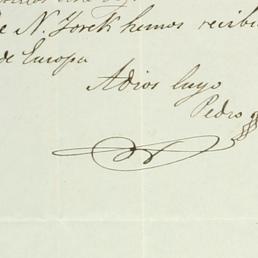 e N. Yorck hemos recibi
de Europa
Adios luyo
Pedro